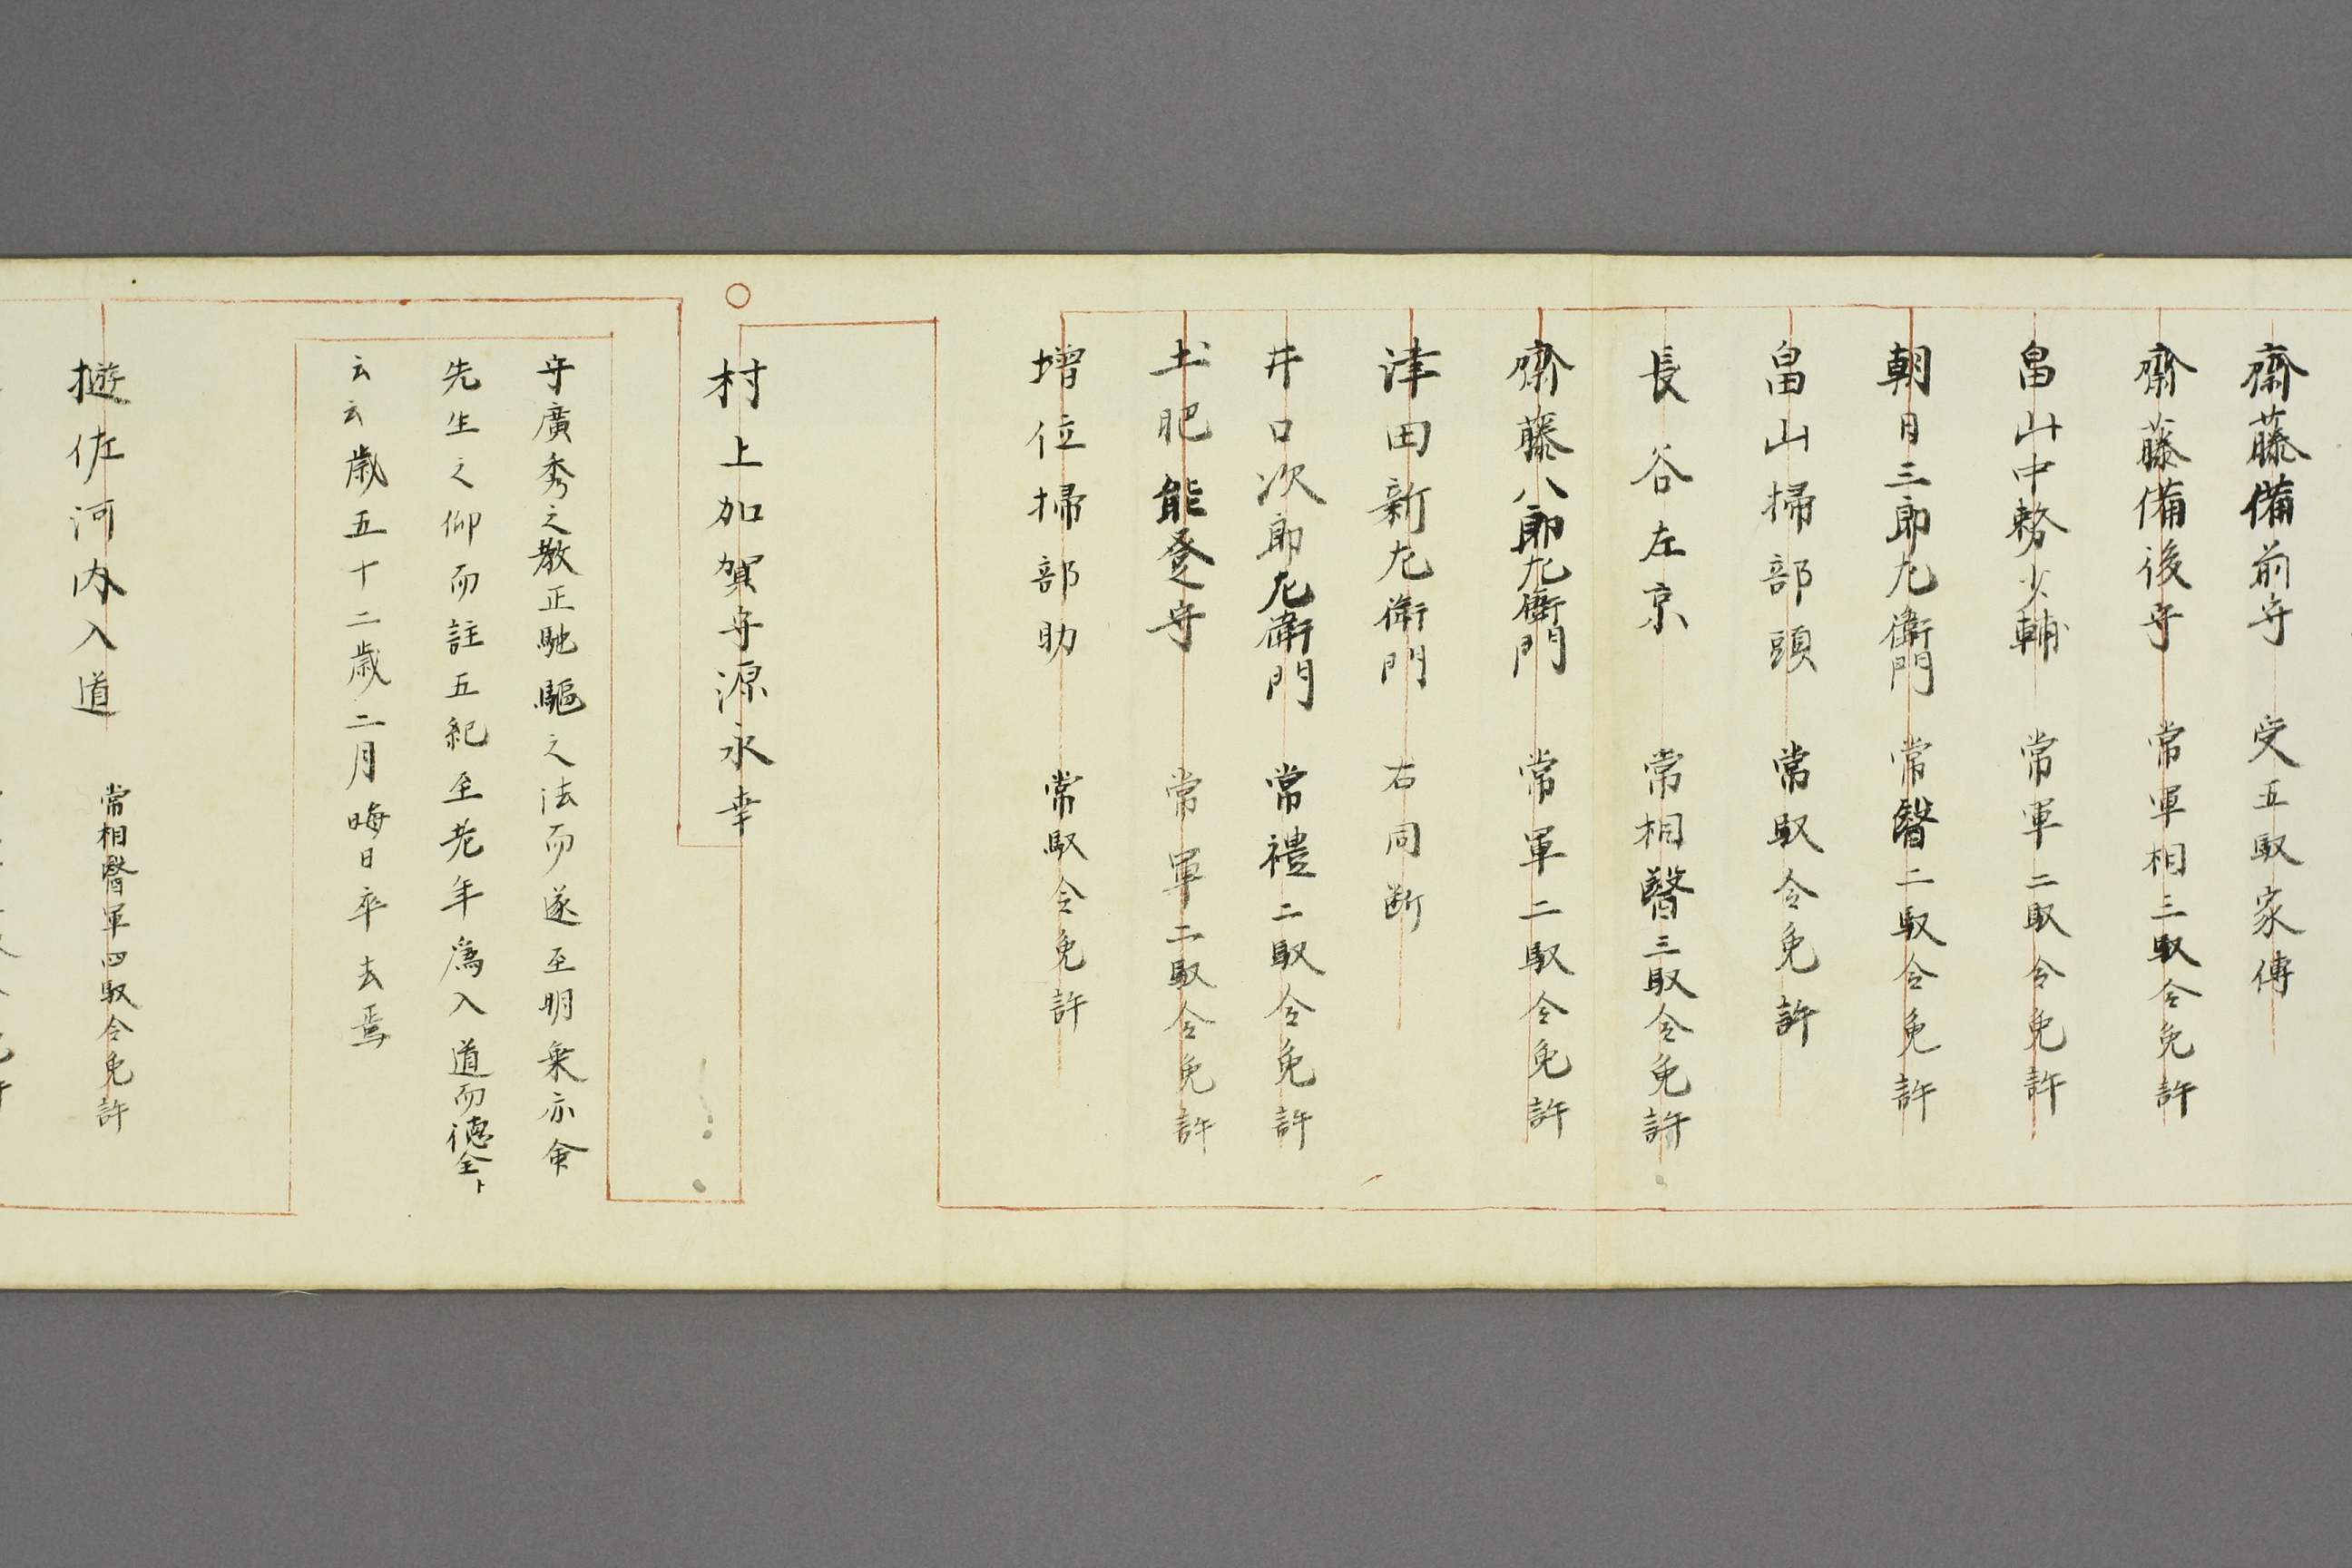 齋藤備前守 受五馭家傳
齋藤備後守 常軍相三馭令免許
畠山中務少輔 常軍二馭令免許
朝日三郎左衛門 常醫二馭令免許
畠山掃部頭 常馭令免許
長谷左京 常相醫三馭令免許
齋藤八郎左衛門 常軍二馭令免許
津田新左衛門 右同断
井口次郎左衛門 常禮二馭令免許
土肥能登守 常軍二馭令免許
增位掃部助 常馭令免許
村上加賀守源永幸
守廣秀之教正馳驅之法而遂至明衆亦會
先生之仰而註五紀至老年為入道而德全ト
云云歳五十二歳二月晦日卒去焉
遊佐河内入道 常相醫軍四馭令免許